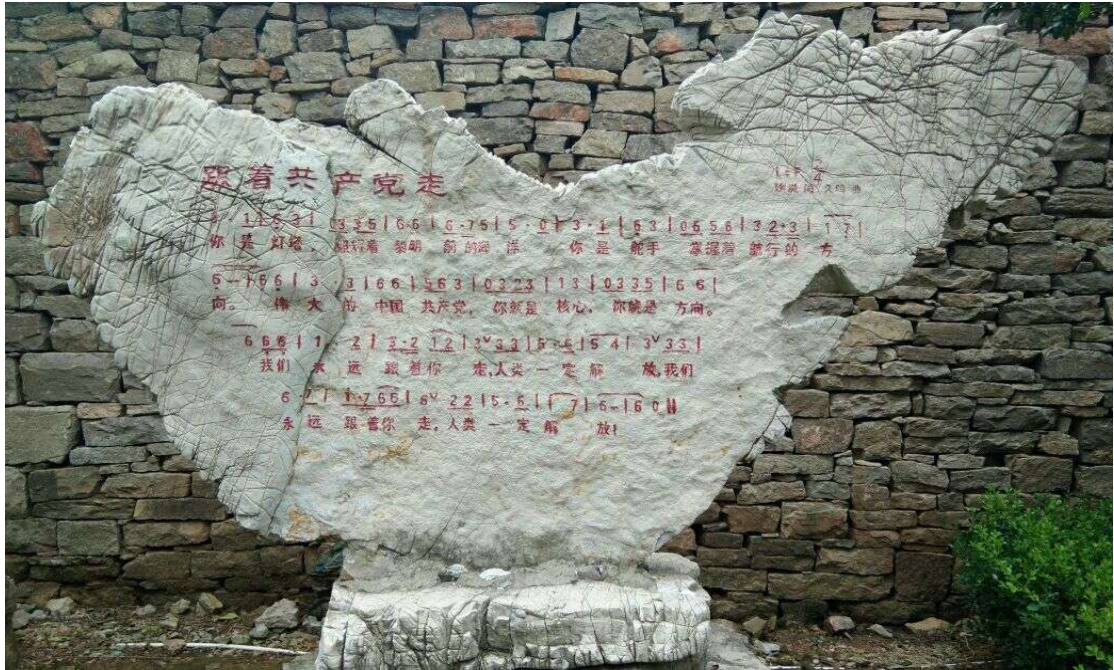 跟着共产党走
1=F 2/4
久鸣 曲
5 1 1 6 3 | 3 3 5 | 6·6 | 6·7 5 | 5 - 0 | 3·1 | 6 3 | 0 6 5 6 | 3 2·3 | 1 7 |
你是灯塔, 照耀着 黎明 前的海洋 你是 舵手 掌握着 航行的 方
6 - | 6 6 | 3· 3 | 6 6 | 5 6 3 | 0 3 2 3 | 1 3 | 0 3 3 5 | 6 6 |
向。 伟大 的 中国 共产党, 你就是 核心, 你就是 方向。
6 6 6 | 1· 2 | 3·2 1 2 | 3 V 3 3 | 6·6 | 5 4 | 3 V 3 3 |
我们 永 远 跟着你 走,人类 一 定 解 放,我们
6 7 | 1·7 6 6 | 6 V 2 2 | 5·6 | 1 7 | 6 - | 6 0 ||
永 远 跟着你 走,人类 一 定 解 放!